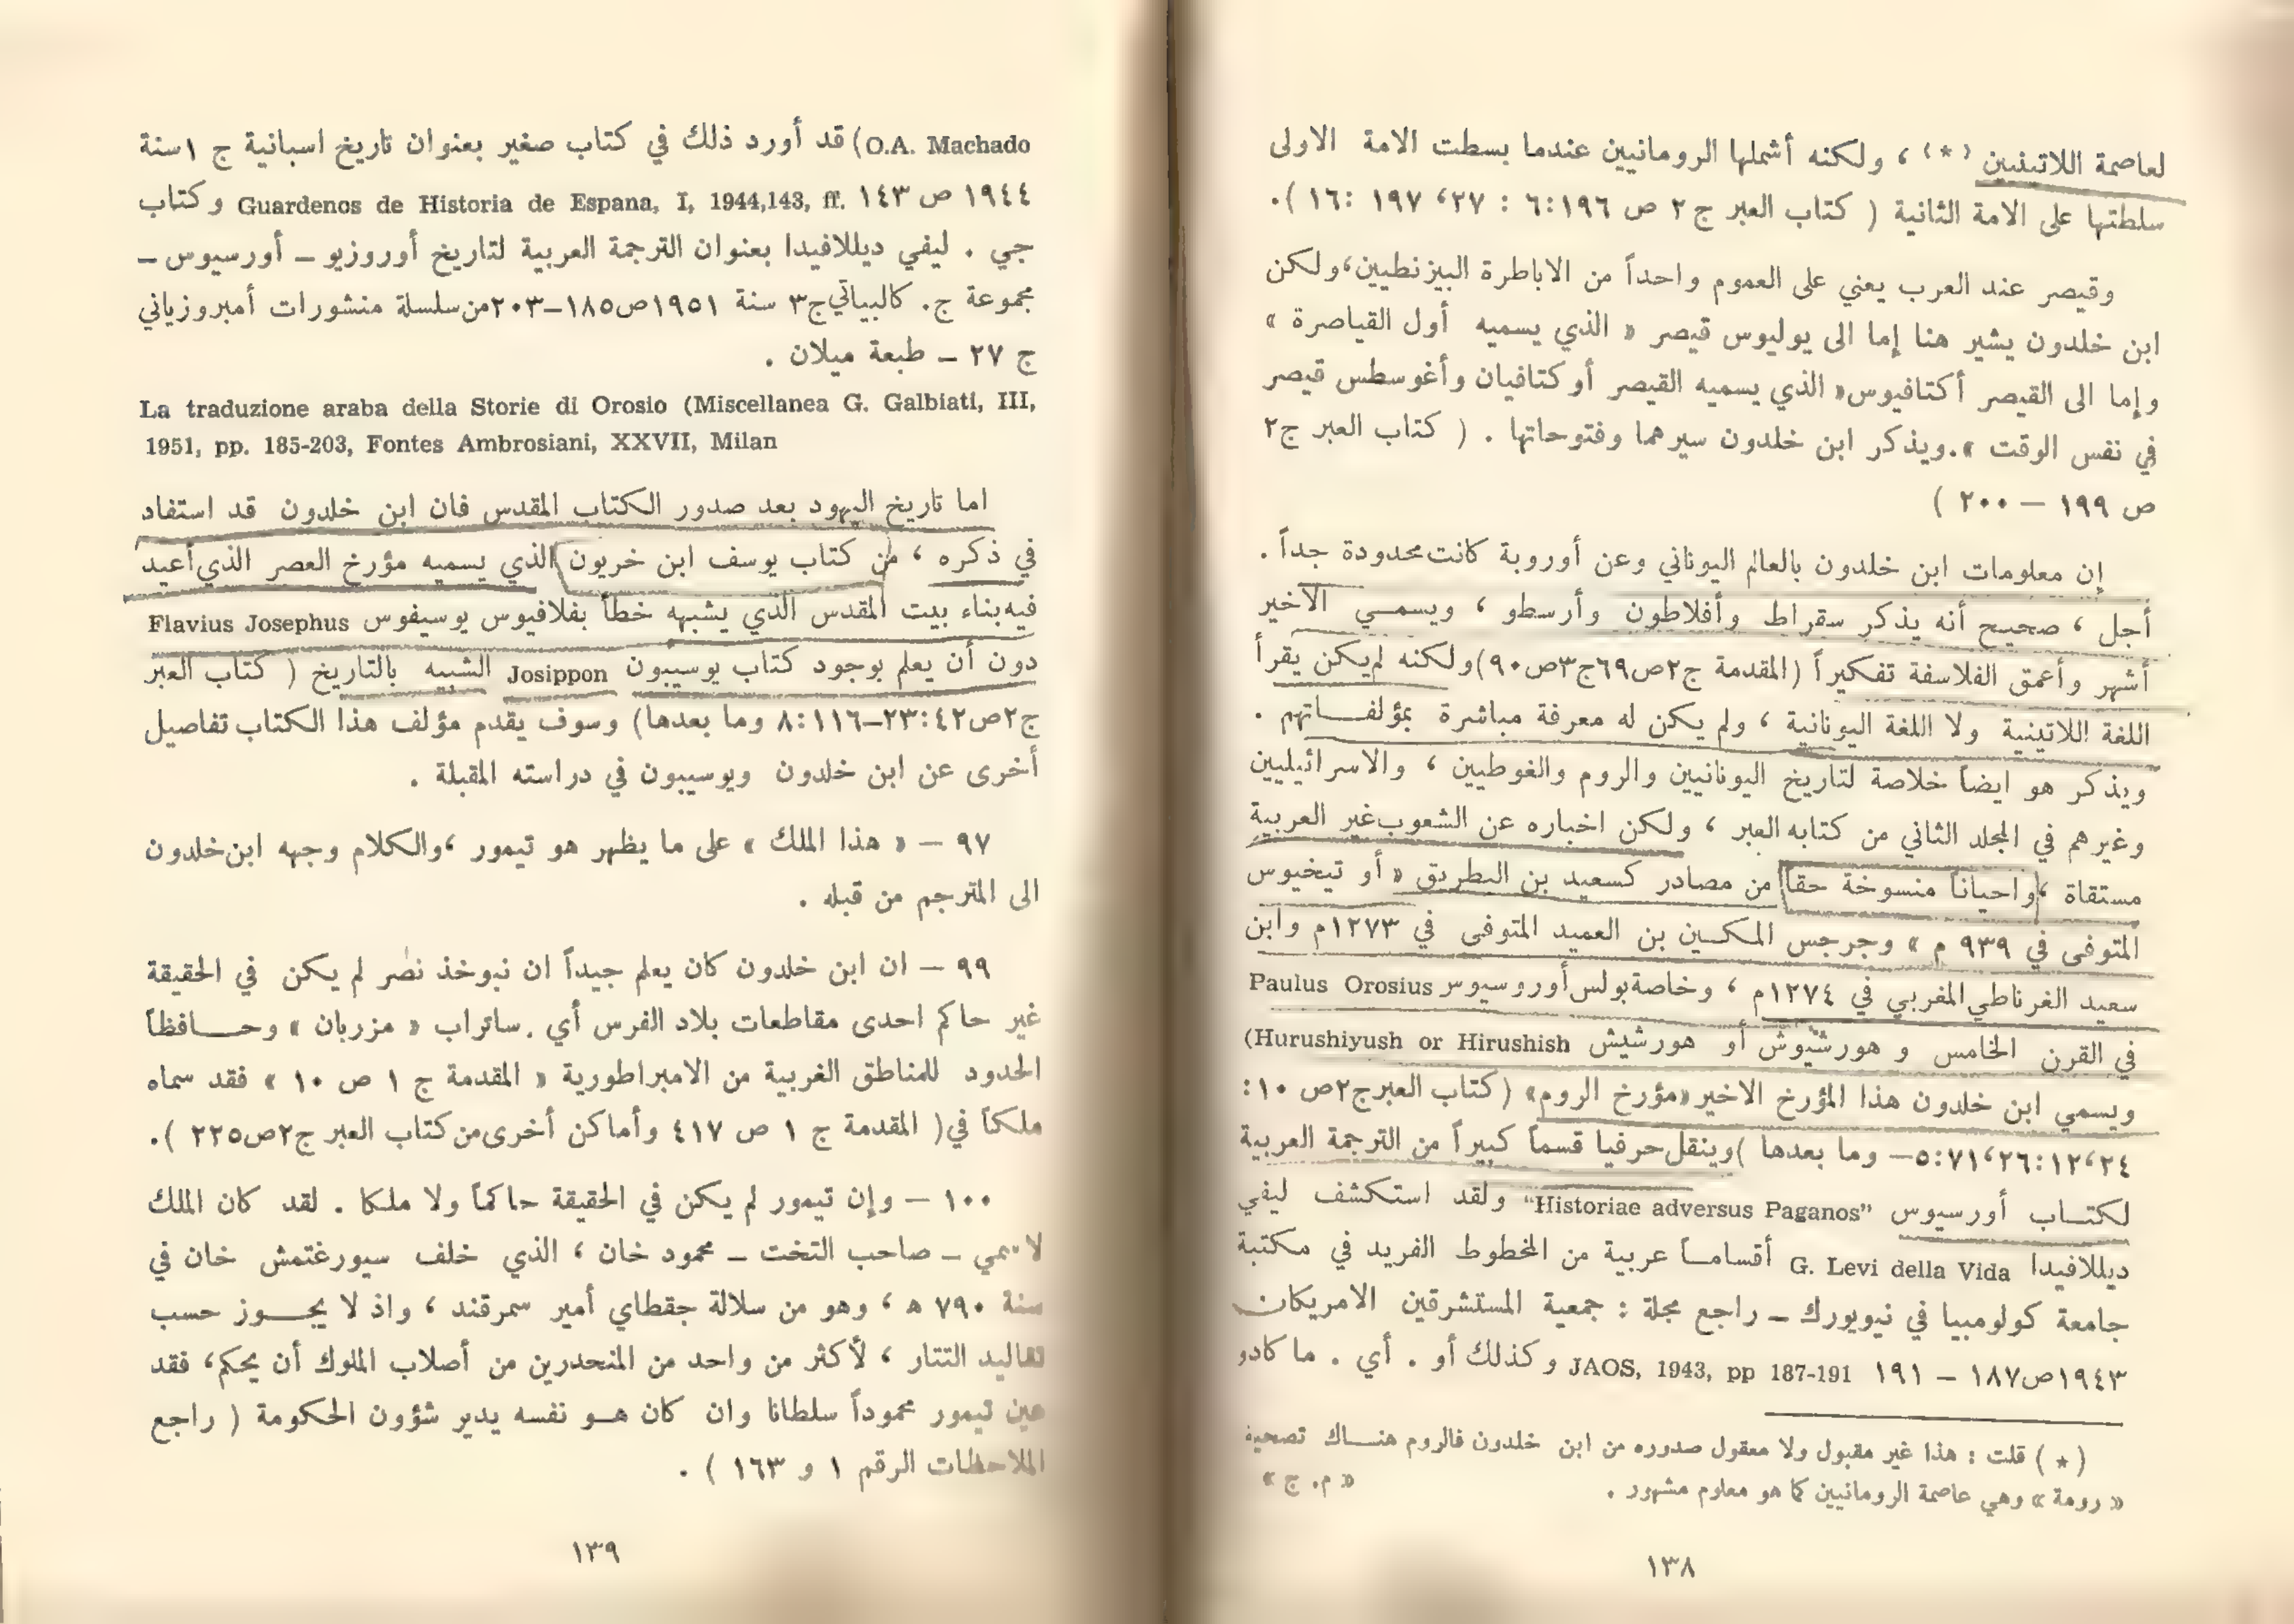 لعاصمة اللاتينيين (*) ، ولكنه أشملها الرومانيين عندما بسطت الامة الاولى
سلطتها على الامة الثانية ( كتاب العبر ج ٢ ص ١٩٦:٦ : ٢٧، ١٩٧ :١٦ ).
وقيصر عند العرب يعني على العموم واحداً من الاباطرة البيزنطيين، ولكن
ابن خلدون يشير هنا إما الى يوليوس قيصر « الذي يسميه أول القياصرة »
وإما الى القيصر أكتافيوس« الذي يسميه القيصر أوكتافيان وأغوسطس قيصر
في نفس الوقت ».ويذكر ابن خلدون سيرهما وفتوحاتها . ( كتاب العبر ج٢
ص ١٩٩ — ٢٠٠ )
إن معلومات ابن خلدون بالعالم اليوناني وعن أوروبة كانت محدودة جداً .
أجل ، صحيح أنه يذكر سقراط وأفلاطون وأرسطو ، ويسمي الاخير
أشهر وأعمق الفلاسفة تفكيراً (المقدمة ج٢ص٦٩ج٣ص٩٠)ولكنه لم يكن يقرأ
اللغة اللاتينية ولا اللغة اليونانية ، ولم يكن له معرفة مباشرة بمؤلفاتهم .
ويذكر هو ايضاً خلاصة لتاريخ اليونانيين والروم والغوطيين ، والاسرائيليين
وغيرهم في المجلد الثاني من كتابه العبر ، ولكن اخباره عن الشعوب غير العربية
مستقاة ،واحياناً منسوخة حقاً من مصادر كسعيد بن البطريق « أو تيخيوس
المتوفى في ٩٣٩ م » وجرجس المكين بن العميد المتوفى في ١٢٧٣م وابن
سعيد الغرناطي المغربي في ١٢٧٤م ، وخاصة بولس أوروسيوس Paulus Orosius
في القرن الخامس و هورشيوش أو هورشيش Hurushiyush or Hirushish)
ويسمي ابن خلدون هذا المؤرخ الاخير«مؤرخ الروم» (كتاب العبرج٢ص ١٠:
٢٤،١٢:٢٦،٧١:٥— وما بعدها )وينقل حرفيا قسماً كبيراً من الترجمة العربية
لكتاب أورسيوس "Historiae adversus Paganos" ولقد استكشف ليفي
ديللافيدا G. Levi della Vida أقساماً عربية من المخطوط الفريد في مكتبة
جامعة كولومبيا في نيويورك — راجع مجلة : جمعية المستشرقين الامريكان
١٩٤٣ص١٨٧ — ١٩١ JAOS, 1943, pp 187-191 وكذلك أو . أي . ماكادو
( * ) قلت : هذا غير مقبول ولا معقول صدوره من ابن خلدون فالروم هناك تصحيف
« رومة » وهي عاصمة الرومانيين كما هو معلوم مشهور . « م. ج »
١٣٨
O.A. Machado) قد أورد ذلك في كتاب صغير بعنوان تاريخ اسبانية ج ١سنة
١٩٤٤ ص ١٤٣ Guardenos de Historia de Espana, I, 1944,143, ff. وكتاب
جي . ليفي ديللافيدا بعنوان الترجمة العربية لتاريخ أوروزيو — أورسيوس —
مجموعة ج. كالبياتي ج٣ سنة ١٩٥١ص١٨٥—٢٠٣من سلسلة منشورات أمبروزياني
ج ٢٧ — طبعة ميلان .
La traduzione araba della Storie di Orosio (Miscellanea G. Galbiati, III,
1951, pp. 185-203, Fontes Ambrosiani, XXVII, Milan
اما تاريخ اليهود بعد صدور الكتاب المقدس فان ابن خلدون قد استفاد
في ذكره ، من كتاب يوسف ابن خريون الذي يسميه مؤرخ العصر الذي أعيد
فيه بناء بيت المقدس الذي يشبهه خطأ بفلافيوس يوسيفوس Flavius Josephus
دون أن يعلم بوجود كتاب يوسيبون Josippon الشبيه بالتاريخ ( كتاب العبر
ج٢ص٤٢:٢٣—١١٦:٨ وما بعدها) وسوف يقدم مؤلف هذا الكتاب تفاصيل
أخرى عن ابن خلدون ويوسيبون في دراسته المقبلة .
٩٧ — « هذا الملك » على ما يظهر هو تيمور ،والكلام وجهه ابن خلدون
الى المترجم من قبله .
٩٩ — ان ابن خلدون كان يعلم جيداً ان نبوخذ نصر لم يكن في الحقيقة
غير حاكم احدى مقاطعات بلاد الفرس أي . ساتراب « مزربان » وحافظاً
الحدود للمناطق الغربية من الامبراطورية « المقدمة ج ١ ص ١٠ » فقد سماه
ملكاً في( المقدمة ج ١ ص ٤١٧ وأماكن أخرى من كتاب العبر ج٢ص٢٢٥ ).
١٠٠ — وإن تيمور لم يكن في الحقيقة حاكماً ولا ملكا . لقد كان الملك
— صاحب التخت — محمود خان ، الذي خلف سيورغتمش خان في
سنة ٧٩٠ ه ، وهو من سلالة جقطاي أمير سمرقند ، واذ لا يجوز حسب
تقاليد التتار ، لأكثر من واحد من المنحدرين من أصلاب الملوك أن يحكم، فقد
عين تيمور محموداً سلطانا وان كان هو نفسه يدير شؤون الحكومة ( راجع
الملاحظات الرقم ١ و ١٦٣ ) .
١٣٩